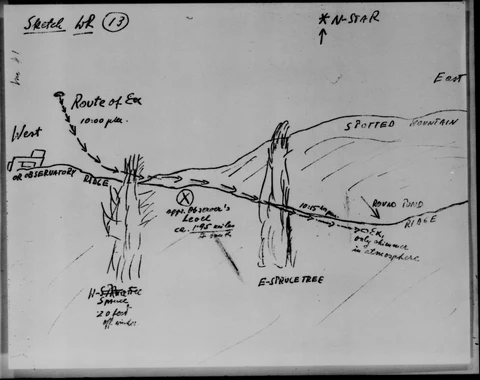 Sketch WR 13
* N-STAR
East
Route of Ex
10:00 p.m.
West
SPOTTED MOUNTAIN
OR OBSERVATORY RIDGE
X
appr. Observer's
Level
ca. 1.95 miles
10:15
ROUND POND
RIDGE
Ex,
only shimmer
in atmosphere
E-SPRUCE TREE
W-SPRUCE TREE
Spruce
20 feet